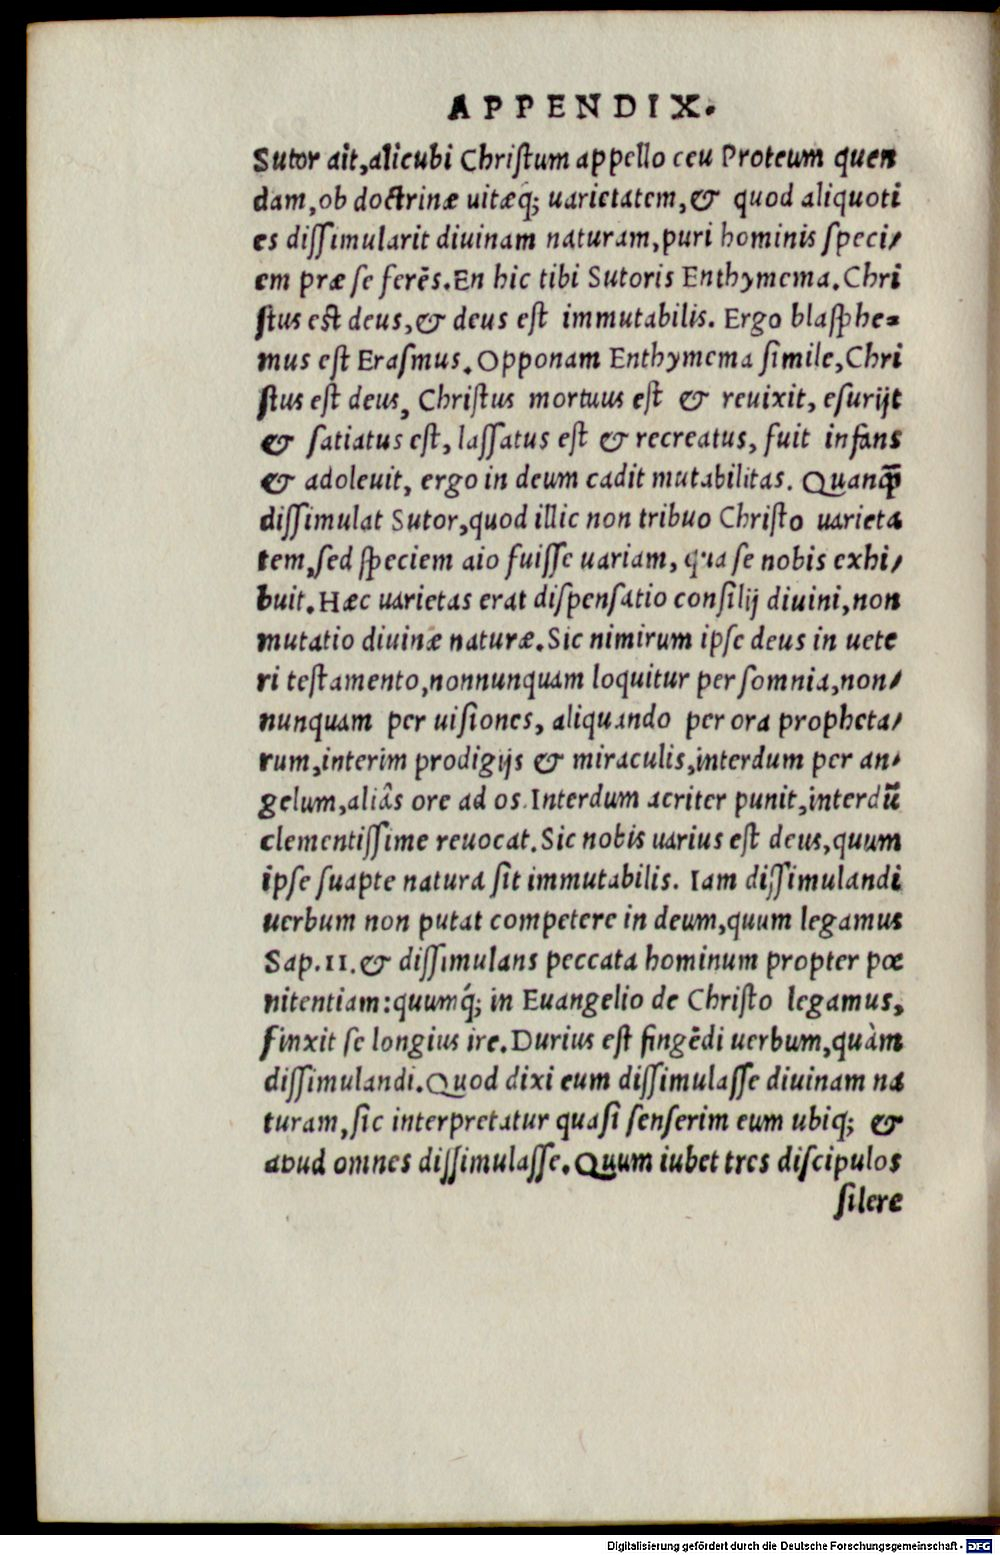 APPENDIX.
Sutor ait, alicubi Christum appello ceu Proteum quen
dam, ob doctrinæ uitæq́; uarietatem, & quod aliquoti
es dissimularit diuinam naturam, puri hominis speci/
em præ se ferēs. En hic tibi Sutoris Enthymema. Chri
stus est deus, & deus est immutabilis. Ergo blasphe-
mus est Erasmus. Opponam Enthymema simile, Chri
stus est deus, Christus mortuus est & reuixit, esurijt
& satiatus est, lassatus est & recreatus, fuit infans
& adoleuit, ergo in deum cadit mutabilitas. Quanq̃
dissimulat Sutor, quod illic non tribuo Christo uarieta
tem, sed speciem aio fuisse uariam, qua se nobis exhi/
buit. Hæc uarietas erat dispensatio consilij diuini, non
mutatio diuinæ naturæ. Sic nimirum ipse deus in uete
ri testamento, nonnunquam loquitur per somnia, non/
nunquam per uisiones, aliquando per ora propheta/
rum, interim prodigijs & miraculis, interdum per an/
gelum, aliâs ore ad os. Interdum acriter punit, interdū
clementissime reuocat. Sic nobis uarius est deus, quum
ipse suapte natura sit immutabilis. Iam dissimulandi
uerbum non putat competere in deum, quum legamus
Sap. 11. & dissimulans peccata hominum propter pœ
nitentiam: quumq́; in Euangelio de Christo legamus,
finxit se longius ire. Durius est fingēdi uerbum, quàm
dissimulandi. Quod dixi eum dissimulasse diuinam na
turam, sic interpretatur quasi senserim eum ubiq; &
apud omnes dissimulasse. Quum iubet tres discipulos
silere
Digitalisierung gefördert durch die Deutsche Forschungsgemeinschaft - DFG